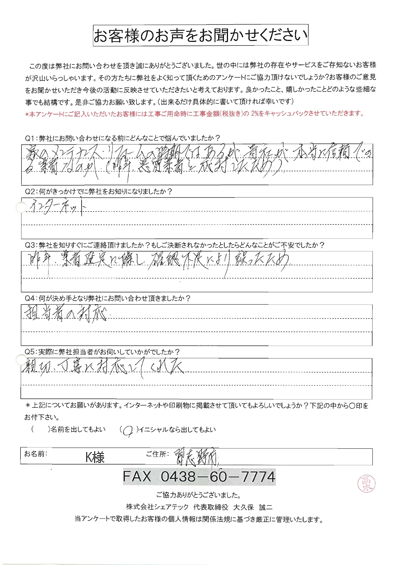 お客様のお声をお聞かせください
この度は弊社にお問い合わせを頂き誠にありがとうございました。世の中には弊社の存在やサービスをご存知ないお客様
が沢山いらっしゃいます。その方たちに弊社をよく知って頂くためのアンケートにご協力頂けないでしょうか？お客様のご意見
をお聞かせいただき今後の活動に反映させていただきたいと考えております。良かったこと、嬉しかったことどのような些細な
事でも結構です。是非ご協力お願い致します。（出来るだけ具体的に書いて頂ければ幸いです）
*本アンケートにご記入いただいたお客様には工事ご用命時に工事金額（税抜き）の2%をキャッシュバックさせていただきます。
Q1：弊社にお問い合わせになる前にどんなことで悩んでいましたか？
Q2：何がきっかけでに弊社をお知りになりましたか？
インターネット
Q3：弊社を知りすぐにご連絡頂けましたか？もしご決断されなかったとしたらどんなことがご不安でしたか？
昨年、業者選定に際し、確認不足により誤ったため
Q4：何が決め手となり弊社にお問い合わせ頂きましたか？
担当者の対応
Q5：実際に弊社担当者がお伺いしていかがでしたか？
親切、丁寧に対応してくれた
*上記についてお願いがあります。インターネットや印刷物に掲載させて頂いてもよろしいでしょうか？下記の中から〇印を
お付下さい。
（　）名前を出してもよい　（〇）イニシャルなら出してもよい
お名前： K様 ご住所： 習志野市
FAX 0438-60-7774
ご協力ありがとうございました。
株式会社シェアテック 代表取締役 大久保 誠二
当アンケートで取得したお客様の個人情報は関係法規に基づき厳正に管理いたします。